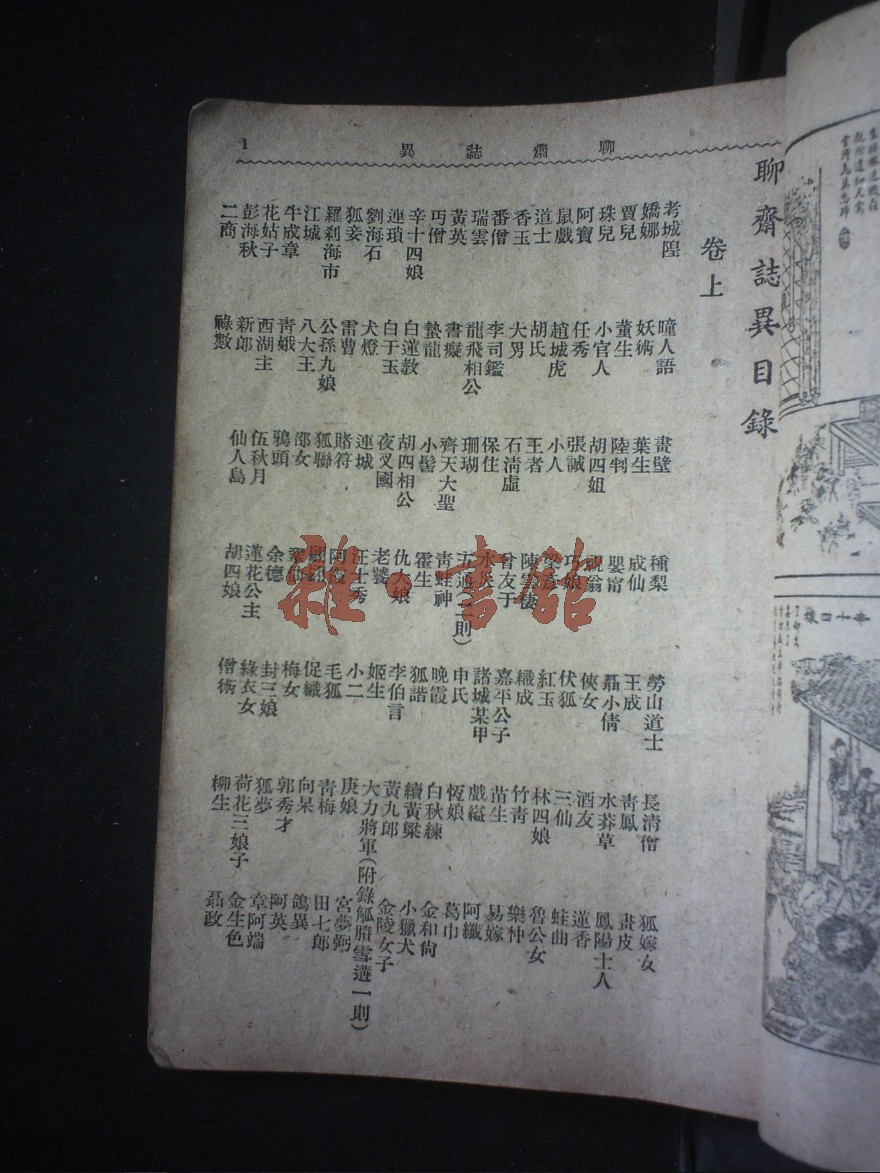 聊齋誌異
1
聊齋誌異目錄
卷上
考城隍
嬌娜
賈兒
珠兒
阿寶
鼠戲
道士
香玉
番僧
瑞雲
黃英
丐僧
辛十四娘
連瑣
劉海石
狐妾
羅刹海市
江城
牛成章
花姑子
彭海秋
二商
瞳人語
妖術
董生
小官人
任秀
趙城虎
胡氏
大男
李司鑑
龍飛相公
書癡
蟄龍
白蓮教
白于玉
犬燈
雷曹
公孫九娘
八大王
青娥
西湖主
新郎
祿數
畫壁
葉生
陸判
胡四姐
張誠
小人
王者
石清虛
保住
珊瑚
齊天大聖
小髻
胡四相公
夜叉國
連城
賭符
狐聯
邵女
鴉頭
伍秋月
仙人島
種梨
成仙
嬰甯
祝翁
巧娘
陳雲棲
曾友于
水災
五通(二則)
青蛙神
霍生
仇大娘
老饕
汪士秀
阿霞
余德
蓮花公主
胡四娘
勞山道士
王成
聶小倩
俠女
伏狐
紅玉
織成
嘉平公子
諸城某甲
申氏
晚霞
狐諧
李伯言
姬生
小二
毛狐
促織
梅女
封三娘
綠衣女
僧術
長清僧
青鳳
水莽草
酒友
三仙
林四娘
竹青
苗生
戲縊
恆娘
白秋練
續黃粱
黃九郎
大力將軍(附錄觚賸雪遘一則)
庚娘
青梅
向杲
郭秀才
狐夢
荷花三娘子
柳生
狐嫁女
畫皮
鳳陽士人
蓮香
蛙曲
魯公女
樂仲
易嫁
阿纖
葛巾
金和尚
小獵犬
金陵女子
宮夢弼
田七郎
鴿異
阿英
章阿端
金生色
聶政
雜·書館
辛十四娘